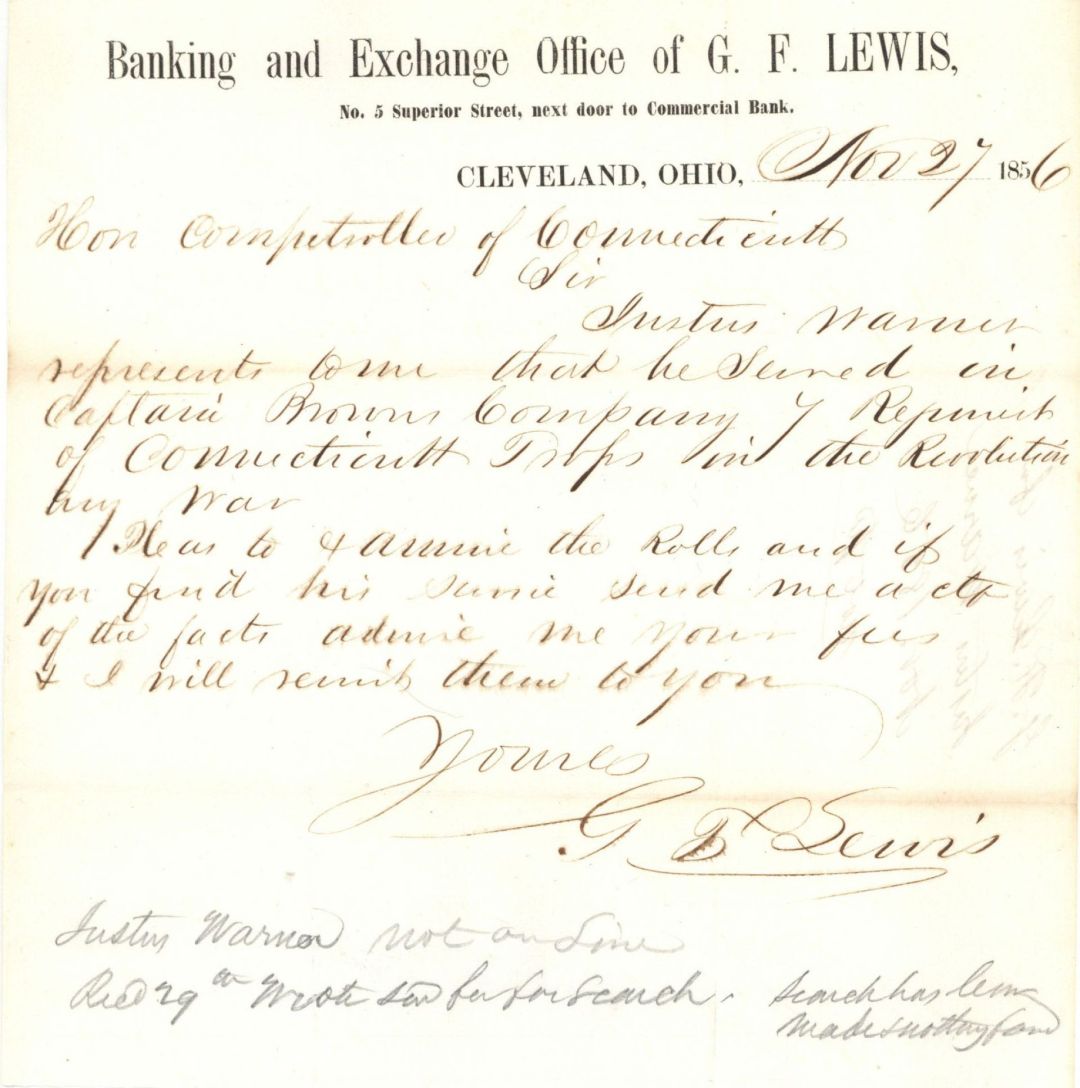 Banking and Exchange Office of G. F. LEWIS,
No. 5 Superior Street, next door to Commercial Bank.
CLEVELAND, OHIO, Nov 27 1856
Hon Comptroller of Connecticutt
Sir
Justus Warner
represents to me that he Served in
Captain Browns Company 7 Regiment
of Connecticutt Trops in the Revolution
ary War
Pleas to examine the Rolls and if
you find his servic send me a ctf
of the facts advise me your fees
& I will remit them to you
Youres
G F Lewis
Justus Warner not on
Recd 29th Wrote for search. search has been
made nothing found